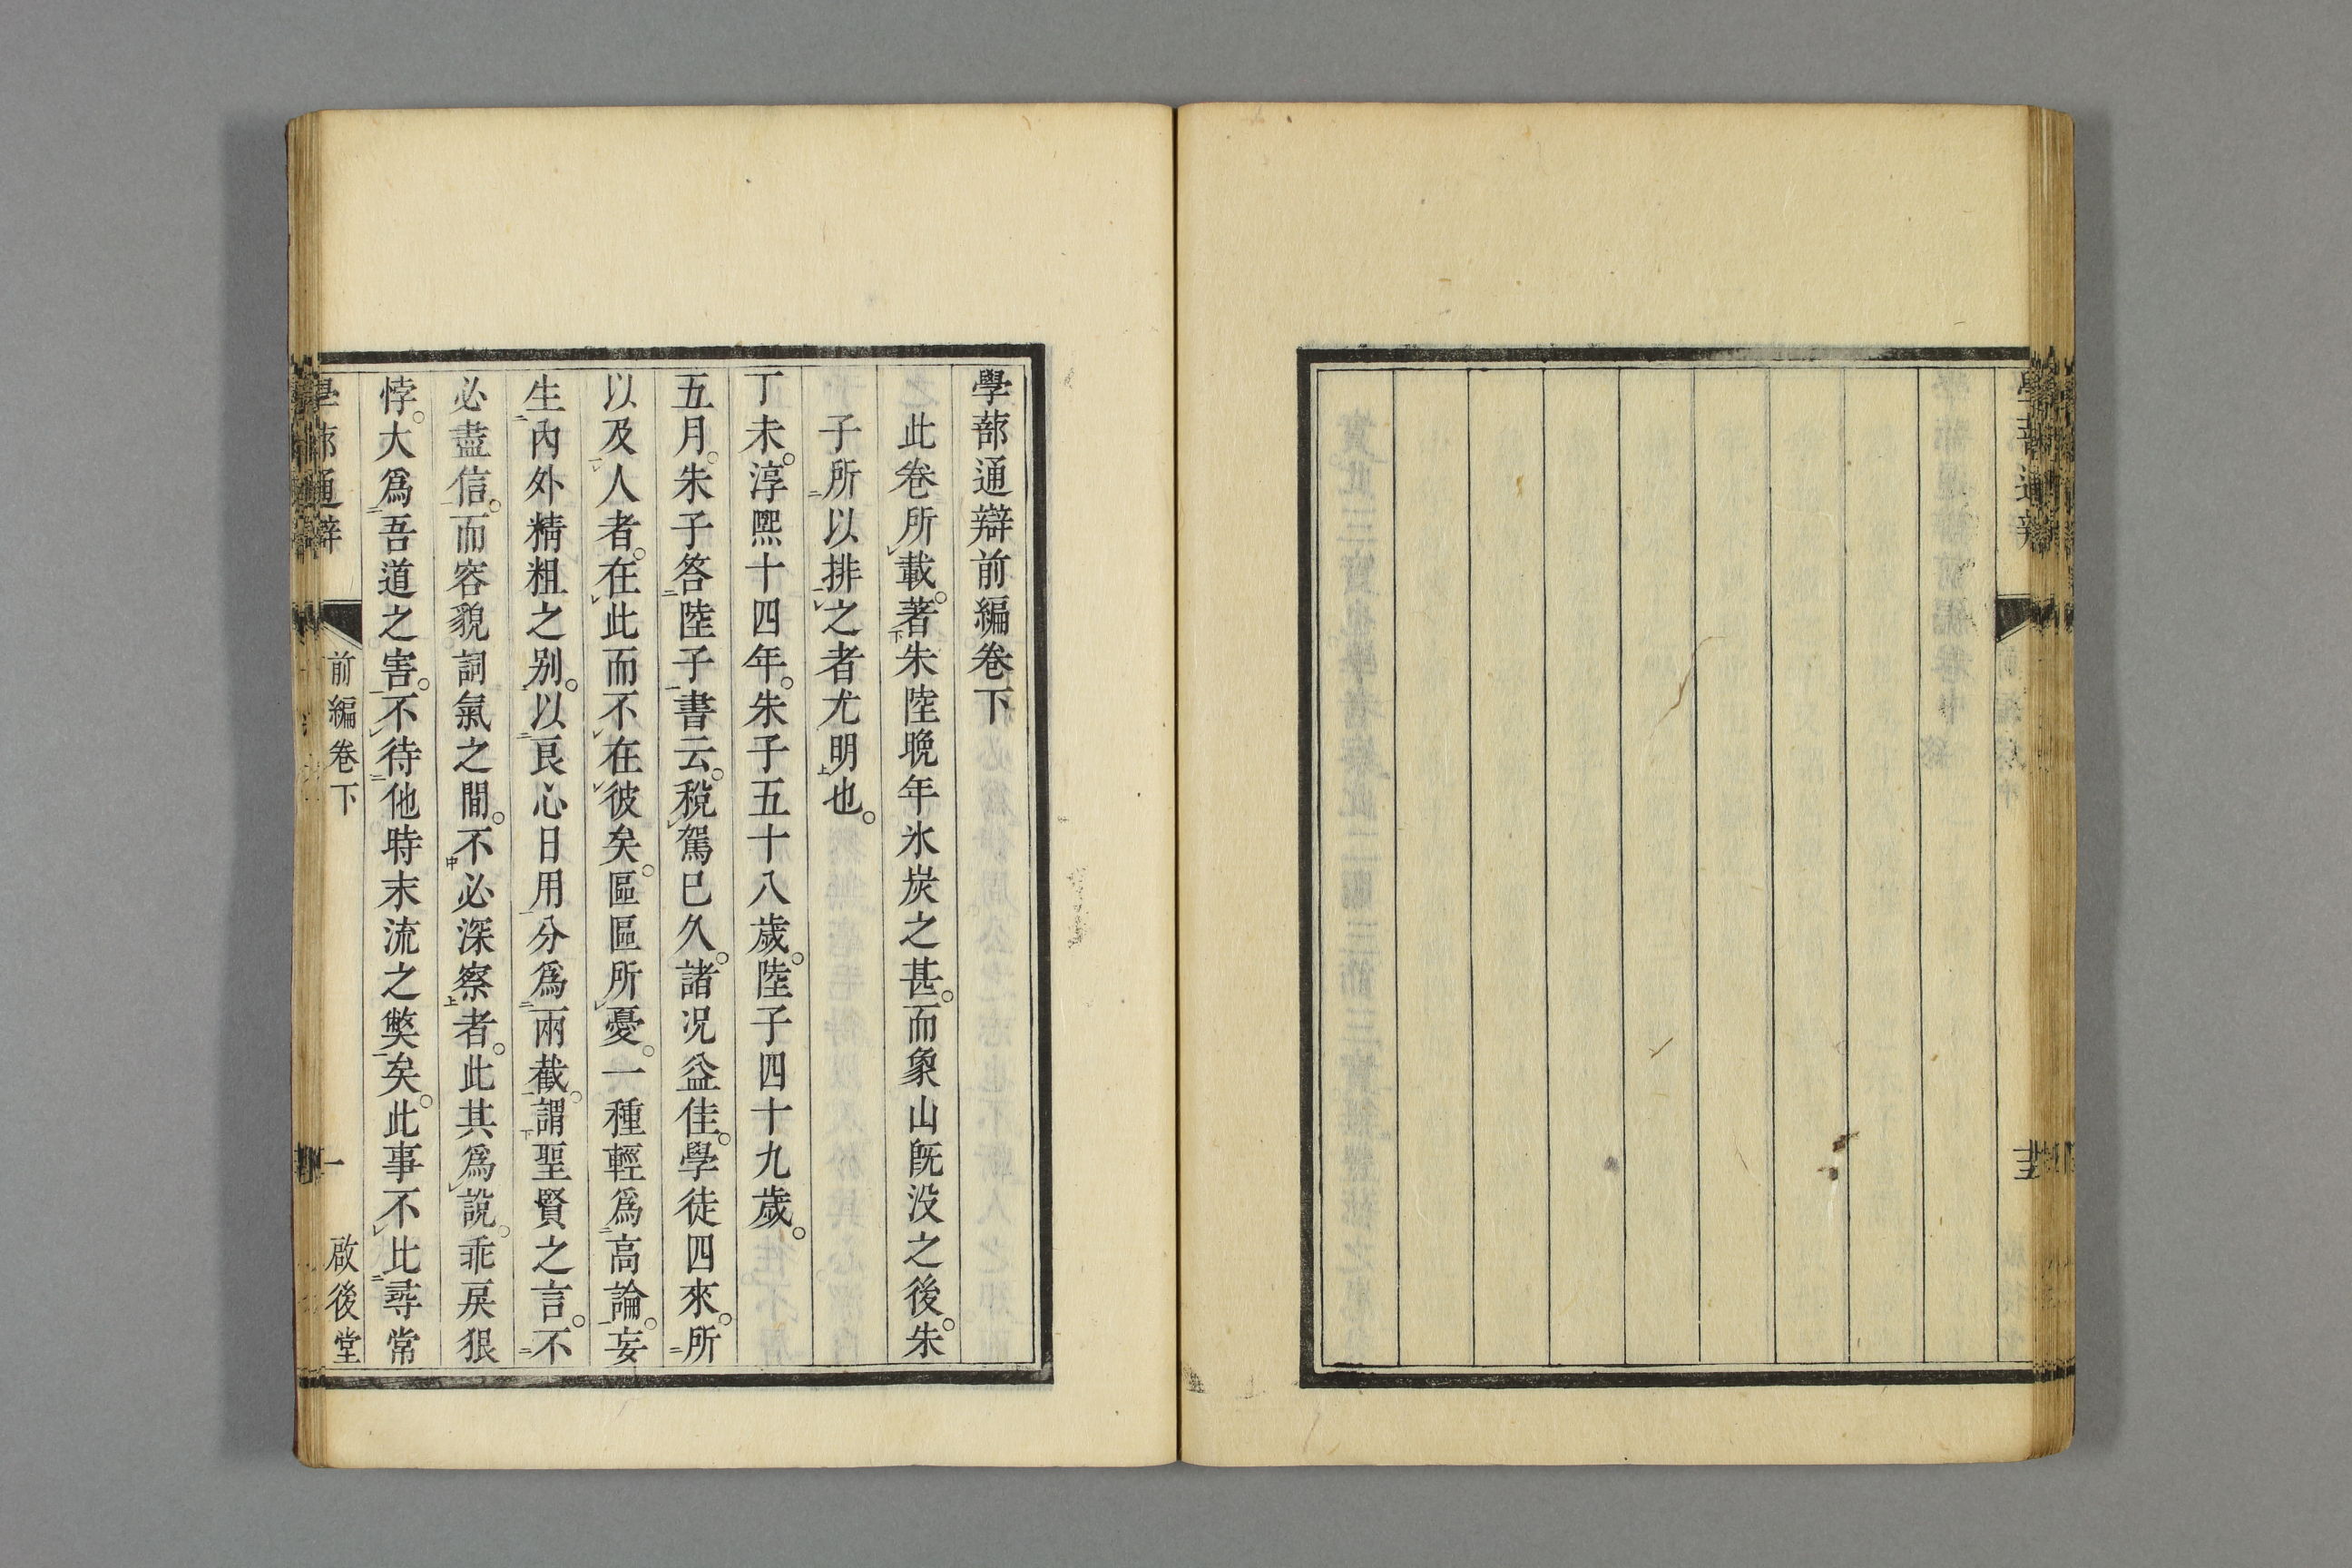 學蔀通辯前編卷下
此卷所載。著朱陸晚年氷炭之甚。而象山旣没之後。朱
子所以排之者尤明也。
丁未。淳熈十四年。朱子五十八歲。陸子四十九歲。
五月。朱子答陸子書云。稅駕已久。諸况益佳。學徒四來。所
以及人者。在此而不在彼矣。區區所憂。一種輕爲高論。妄
生內外精粗之别。以良心日用分爲兩截。謂聖賢之言。不
必盡信。而容貌詞氣之間。不必深察者。此其爲說。乖戾狠
悖。大爲吾道之害。不待他時末流之弊矣。此事不比尋常
學蔀通辯 前編卷下 一 啟後堂